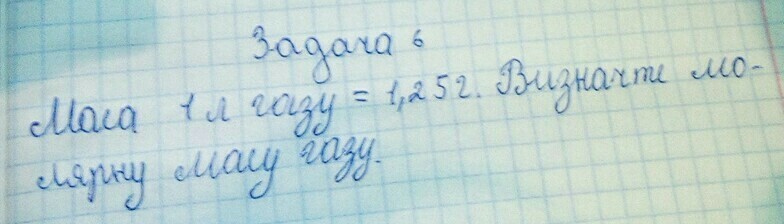 Задача 6
Маса 1 л газу = 1,25 г. Визначте мо-
лярну масу газу.